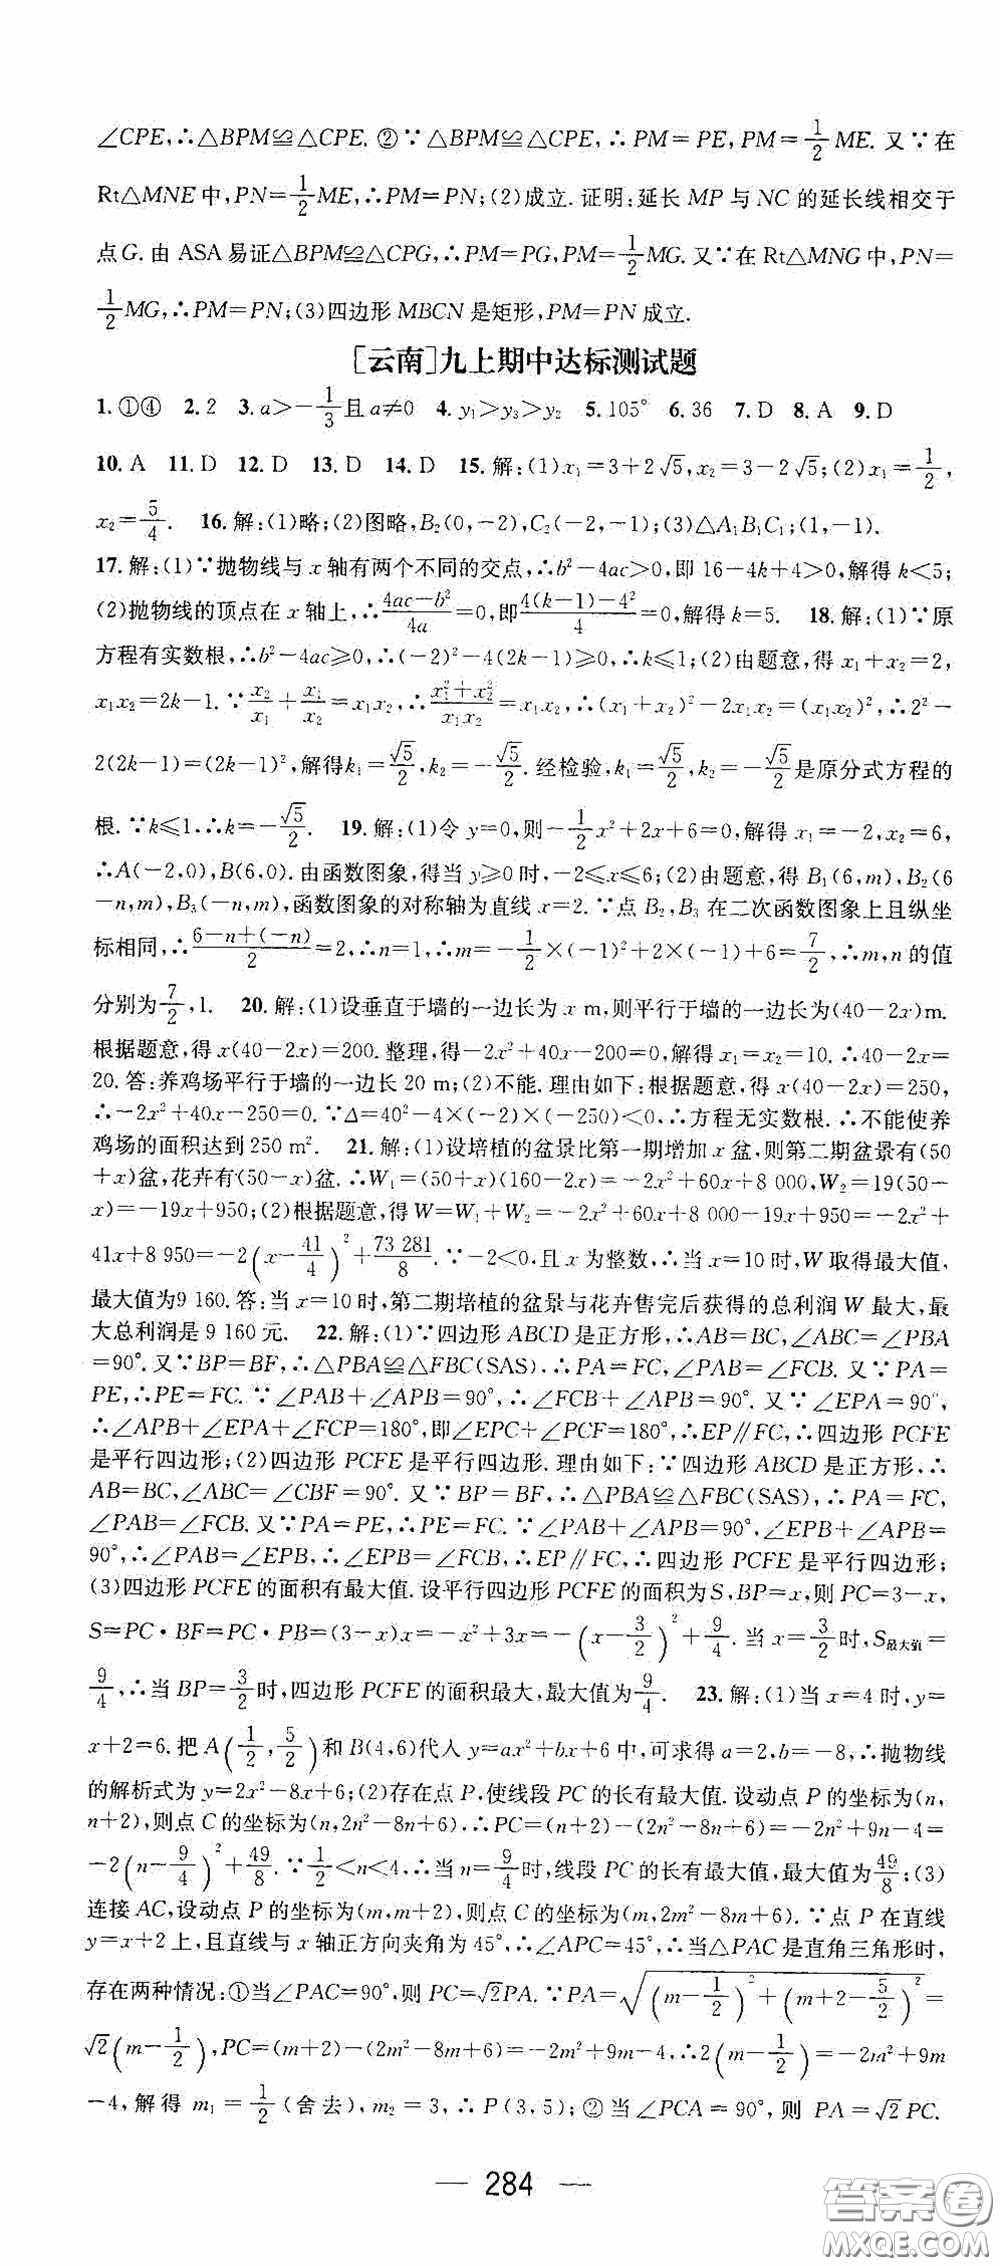 ∠CPE,∴△BPM≌△CPE. ②∵△BPM≌△CPE,∴PM=PE,PM=1/2ME. 又∵在
Rt△MNE中,PN=1/2ME,∴PM=PN;(2)成立. 证明:延长 MP 与 NC 的延长线相交于
点G. 由 ASA 易证△BPM≌△CPG,∴PM=PG,PM=1/2MG. 又∵在Rt△MNG中,PN=
1/2MG,∴PM=PN;(3)四边形 MBCN 是矩形,PM=PN 成立.
[云南]九上期中达标测试题
1. ①④ 2. 2 3. a>-1/3且a≠0 4. y₁>y₃>y₂ 5. 105° 6. 36 7. D 8. A 9. D
10. A 11. D 12. D 13. D 14. D 15. 解:(1)x₁=3+2√5,x₂=3-2√5;(2)x₁=1/2,
x₂=5/4. 16. 解:(1)略;(2)图略,B₂(0,-2),C₂(-2,-1);(3)△A₁B₁C₁;(1,-1).
17. 解:(1)∵抛物线与 x 轴有两个不同的交点,∴b²-4ac>0,即 16-4k+4>0,解得 k<5;
(2)抛物线的顶点在 x 轴上,∴(4ac-b²)/4a=0,即(4(k-1)-4²)/4=0,解得 k=5. 18. 解:(1)∵原
方程有实数根,∴b²-4ac≥0,∴(-2)²-4(2k-1)≥0,∴k≤1;(2)由题意,得 x₁+x₂=2,
x₁x₂=2k-1. ∵x₂/x₁+x₁/x₂=x₁x₂,∴(x₁²+x₂²)/x₁x₂=x₁x₂,∴(x₁+x₂)²-2x₁x₂=(x₁x₂)²,∴2²-
2(2k-1)=(2k-1)²,解得k₁=√5/2,k₂=-√5/2. 经检验,k₁=√5/2,k₂=-√5/2是原分式方程的
根. ∵k≤1,∴k=-√5/2. 19. 解:(1)令 y=0,则-1/2x²+2x+6=0,解得 x₁=-2,x₂=6,
∴A(-2,0),B(6,0). 由函数图象,得当 y≥0 时,-2≤x≤6;(2)由题意,得 B₁(6,m),B₂(6
-n,m),B₃(-n,m),函数图象的对称轴为直线 x=2. ∵点 B₂,B₃ 在二次函数图象上且纵坐
标相同,∴(6-n+(-n))/2=2,∴n=1,∴m=-1/2×(-1)²+2×(-1)+6=7/2,∴m,n的值
分别为7/2,1. 20. 解:(1)设垂直于墙的一边长为 x m,则平行于墙的一边长为(40-2x)m.
根据题意,得 x(40-2x)=200. 整理,得-2x²+40x-200=0,解得 x₁=x₂=10. ∴40-2x=
20. 答:养鸡场平行于墙的一边长 20 m;(2)不能. 理由如下:根据题意,得 x(40-2x)=250,
∴-2x²+40x-250=0. ∵Δ=40²-4×(-2)×(-250)<0,∴方程无实数根. ∴不能使养
鸡场的面积达到 250 m². 21. 解:(1)设培植的盆景比第一期增加 x 盆,则第二期盆景有(50
+x)盆,花卉有(50-x)盆. ∴W₁=(50+x)(160-2x)=-2x²+60x+8 000,W₂=19(50-
x)=-19x+950;(2)根据题意,得 W=W₁+W₂=-2x²+60x+8 000-19x+950=-2x²+
41x+8 950=-2(x-41/4)²+73 281/8. ∵-2<0,且 x 为整数,∴当 x=10 时,W 取得最大值,
最大值为9 160. 答:当 x=10 时,第二期培植的盆景与花卉售完后获得的总利润 W 最大,最
大总利润是 9 160 元. 22. 解:(1)∵四边形 ABCD 是正方形,∴AB=BC,∠ABC=∠PBA
=90°. 又∵BP=BF,∴△PBA≌△FBC(SAS),∴PA=FC,∠PAB=∠FCB. 又∵PA=
PE,∴PE=FC. ∵∠PAB+∠APB=90°,∴∠FCB+∠APB=90°. 又∵∠EPA=90°,
∴∠APB+∠EPA+∠FCP=180°,即∠EPC+∠PCF=180°,∴EP∥FC,∴四边形 PCFE
是平行四边形;(2)四边形 PCFE 是平行四边形. 理由如下:∵四边形 ABCD 是正方形,∴
AB=BC,∠ABC=∠CBF=90°. 又∵BP=BF,∴△PBA≌△FBC(SAS),∴PA=FC,
∠PAB=∠FCB. 又∵PA=PE,∴PE=FC. ∵∠PAB+∠APB=90°,∠EPB+∠APB=
90°,∴∠PAB=∠EPB,∴∠EPB=∠FCB,∴EP∥FC,∴四边形 PCFE 是平行四边形;
(3)四边形 PCFE 的面积有最大值. 设平行四边形 PCFE 的面积为S,BP=x,则 PC=3-x,
S=PC·BF=PC·PB=(3-x)x=-x²+3x=-(x-3/2)²+9/4. 当 x=3/2时,S最大值=
9/4,∴当 BP=3/2时,四边形 PCFE 的面积最大,最大值为9/4. 23. 解:(1)当 x=4 时,y=
x+2=6. 把 A(1/2,5/2)和 B(4,6)代入 y=ax²+bx+6 中,可求得 a=2,b=-8,∴抛物线
的解析式为 y=2x²-8x+6;(2)存在点 P,使线段 PC 的长有最大值. 设动点 P 的坐标为(n,
n+2),则点 C 的坐标为(n,2n²-8n+6).∴PC=(n+2)-(2n²-8n+6)=-2n²+9n-4=
-2(n-9/4)²+49/8. ∵1/2<n<4,∴当 n=9/4时,线段 PC 的长有最大值,最大值为49/8;(3)
连接 AC,设动点 P 的坐标为(m,m+2),则点 C 的坐标为(m,2m²-8m+6). ∵点 P 在直线
y=x+2 上,且直线与 x 轴正方向夹角为 45°,∴∠APC=45°,∴当△PAC是直角三角形时,
存在两种情况:①当∠PAC=90°,则 PC=√2PA. ∵PA=√((m-1/2)²+(m+2-5/2)²)=
√2(m-1/2),PC=(m+2)-(2m²-8m+6)=-2m²+9m-4,∴2(m-1/2)=-2m²+9m
-4,解得 m₁=1/2(舍去),m₂=3,∴P(3,5);②当∠PCA=90°,则 PA=√2PC.
— 284 —
答案卷
MXQE.COM